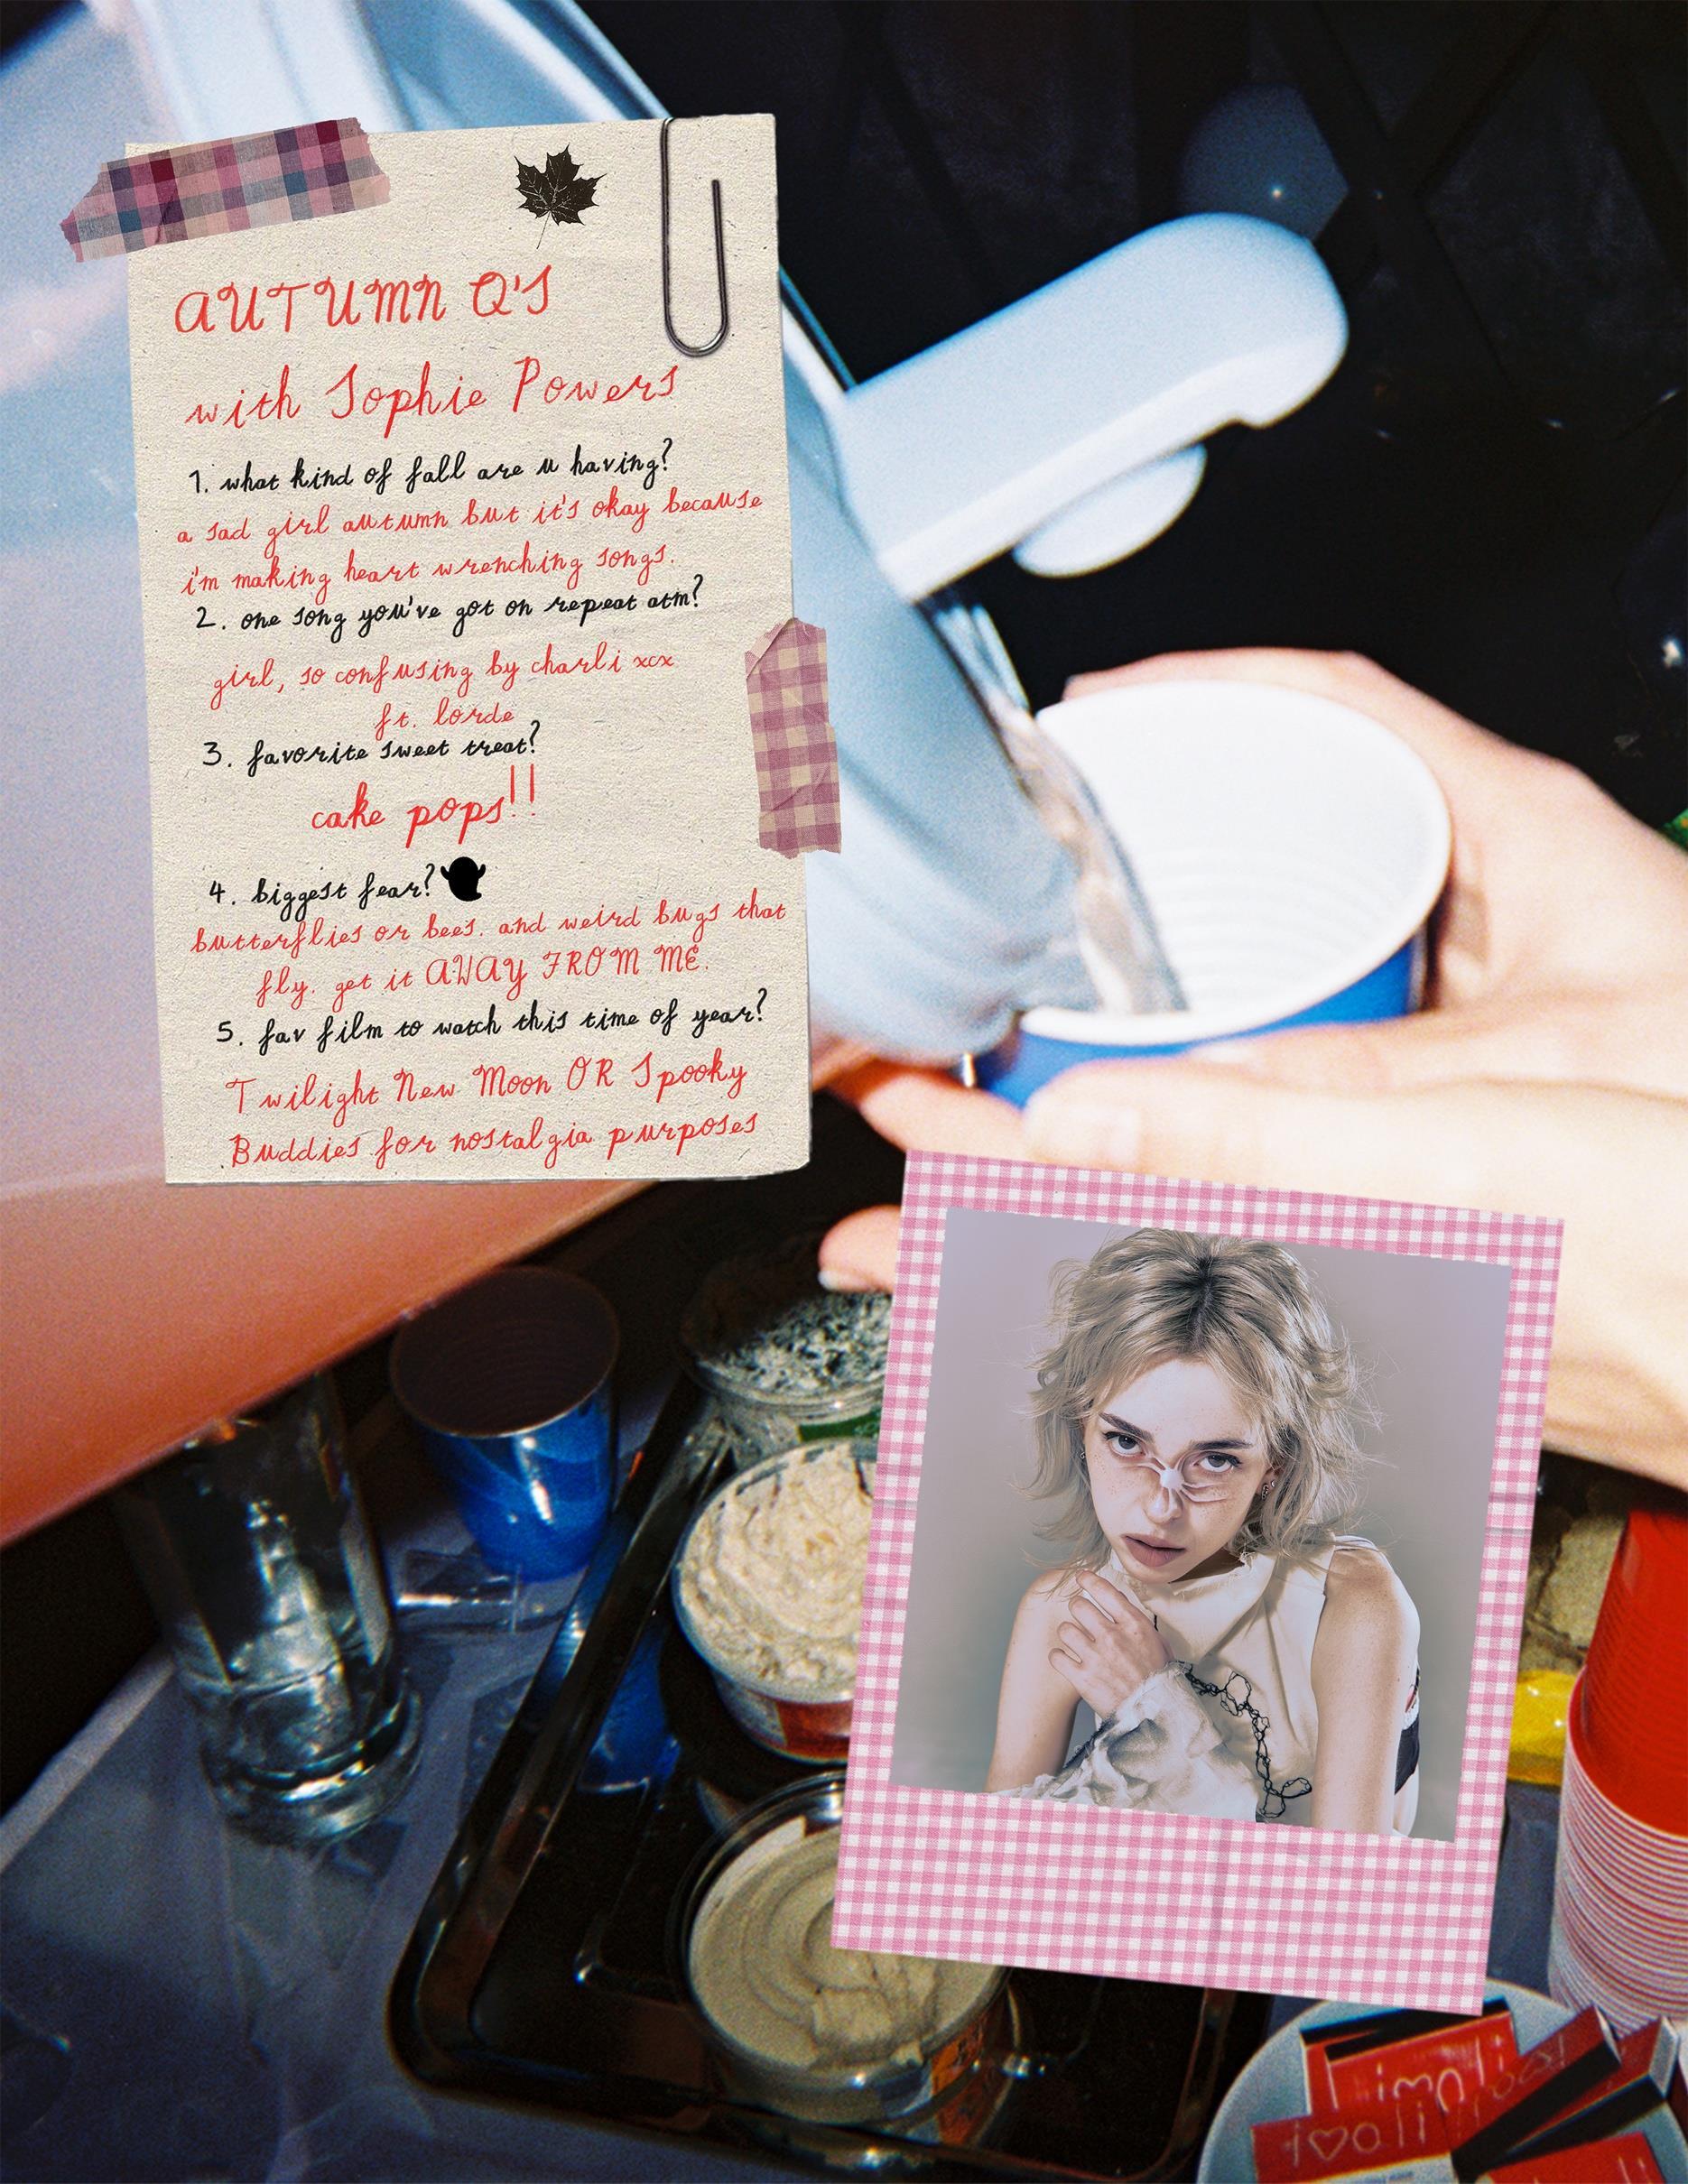 AUTUMN Q'S
with Sophie Powers
1. what kind of fall are u having?
a sad girl autumn but it's okay because
i'm making heart wrenching songs.
2. one song you've got on repeat atm?
girl, so confusing by charli xcx
ft. lorde
3. favorite sweet treat?
cake pops!!
4. biggest fear?
butterflies or bees. and weird bugs that
fly. get it AWAY FROM ME.
5. fav film to watch this time of year?
Twilight New Moon OR Spooky
Buddies for nostalgia purposes